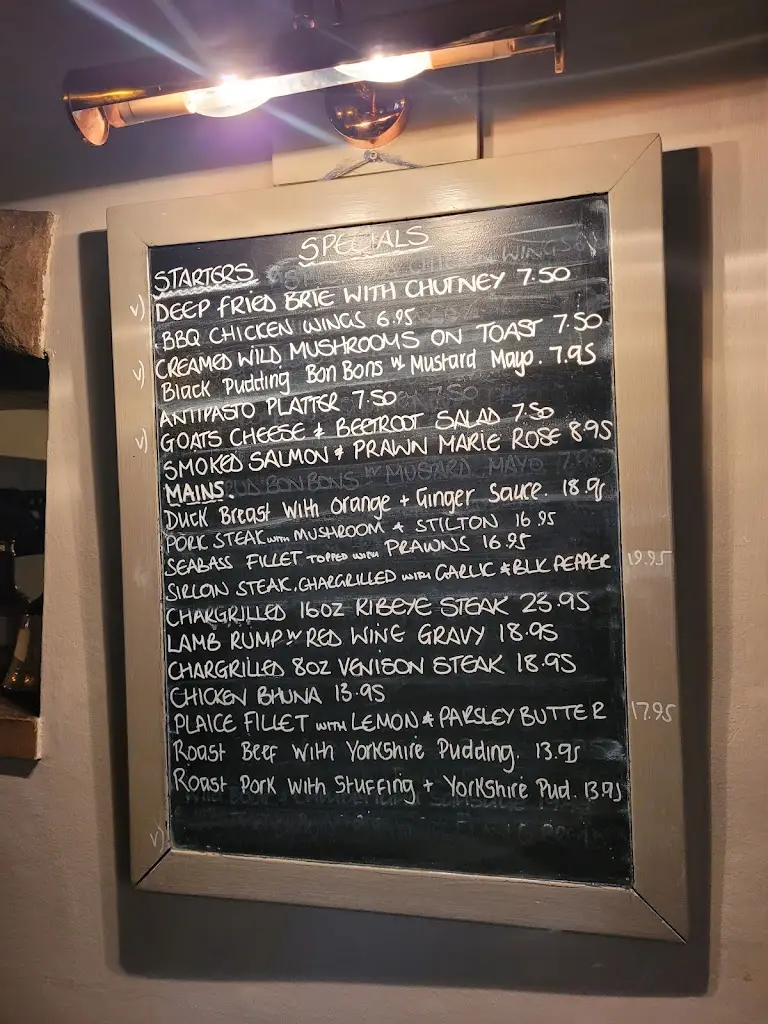 SPECIALS
STARTERS
v) DEEP FRIED BRIE WITH CHUTNEY 7.50
BBQ CHICKEN WINGS 6.95
v) CREAMED WILD MUSHROOMS ON TOAST 7.50
Black Pudding Bon Bons w Mustard Mayo. 7.95
ANTIPASTO PLATTER 7.50
v) GOATS CHEESE & BEETROOT SALAD 7.50
SMOKED SALMON & PRAWN MARIE ROSE 8.95
MAINS.
Duck Breast with orange + Ginger Sauce. 18.95
PORK STEAK WITH MUSHROOM & STILTON 16.95
SEABASS FILLET TOPPED WITH PRAWNS 16.95
SIRLOIN STEAK. CHARGRILLED WITH GARLIC & BLK PEPPER 19.95
CHARGRILLED 16OZ RIBEYE STEAK 25.95
LAMB RUMP W RED WINE GRAVY 18.95
CHARGRILLED 8OZ VENISON STEAK 18.95
CHICKEN BHUNA 13.95
PLAICE FILLET WITH LEMON & PARSLEY BUTTER 17.95
Roast Beef with Yorkshire Pudding. 13.95
Roast Pork with Stuffing + Yorkshire Pud. 13.95
v)